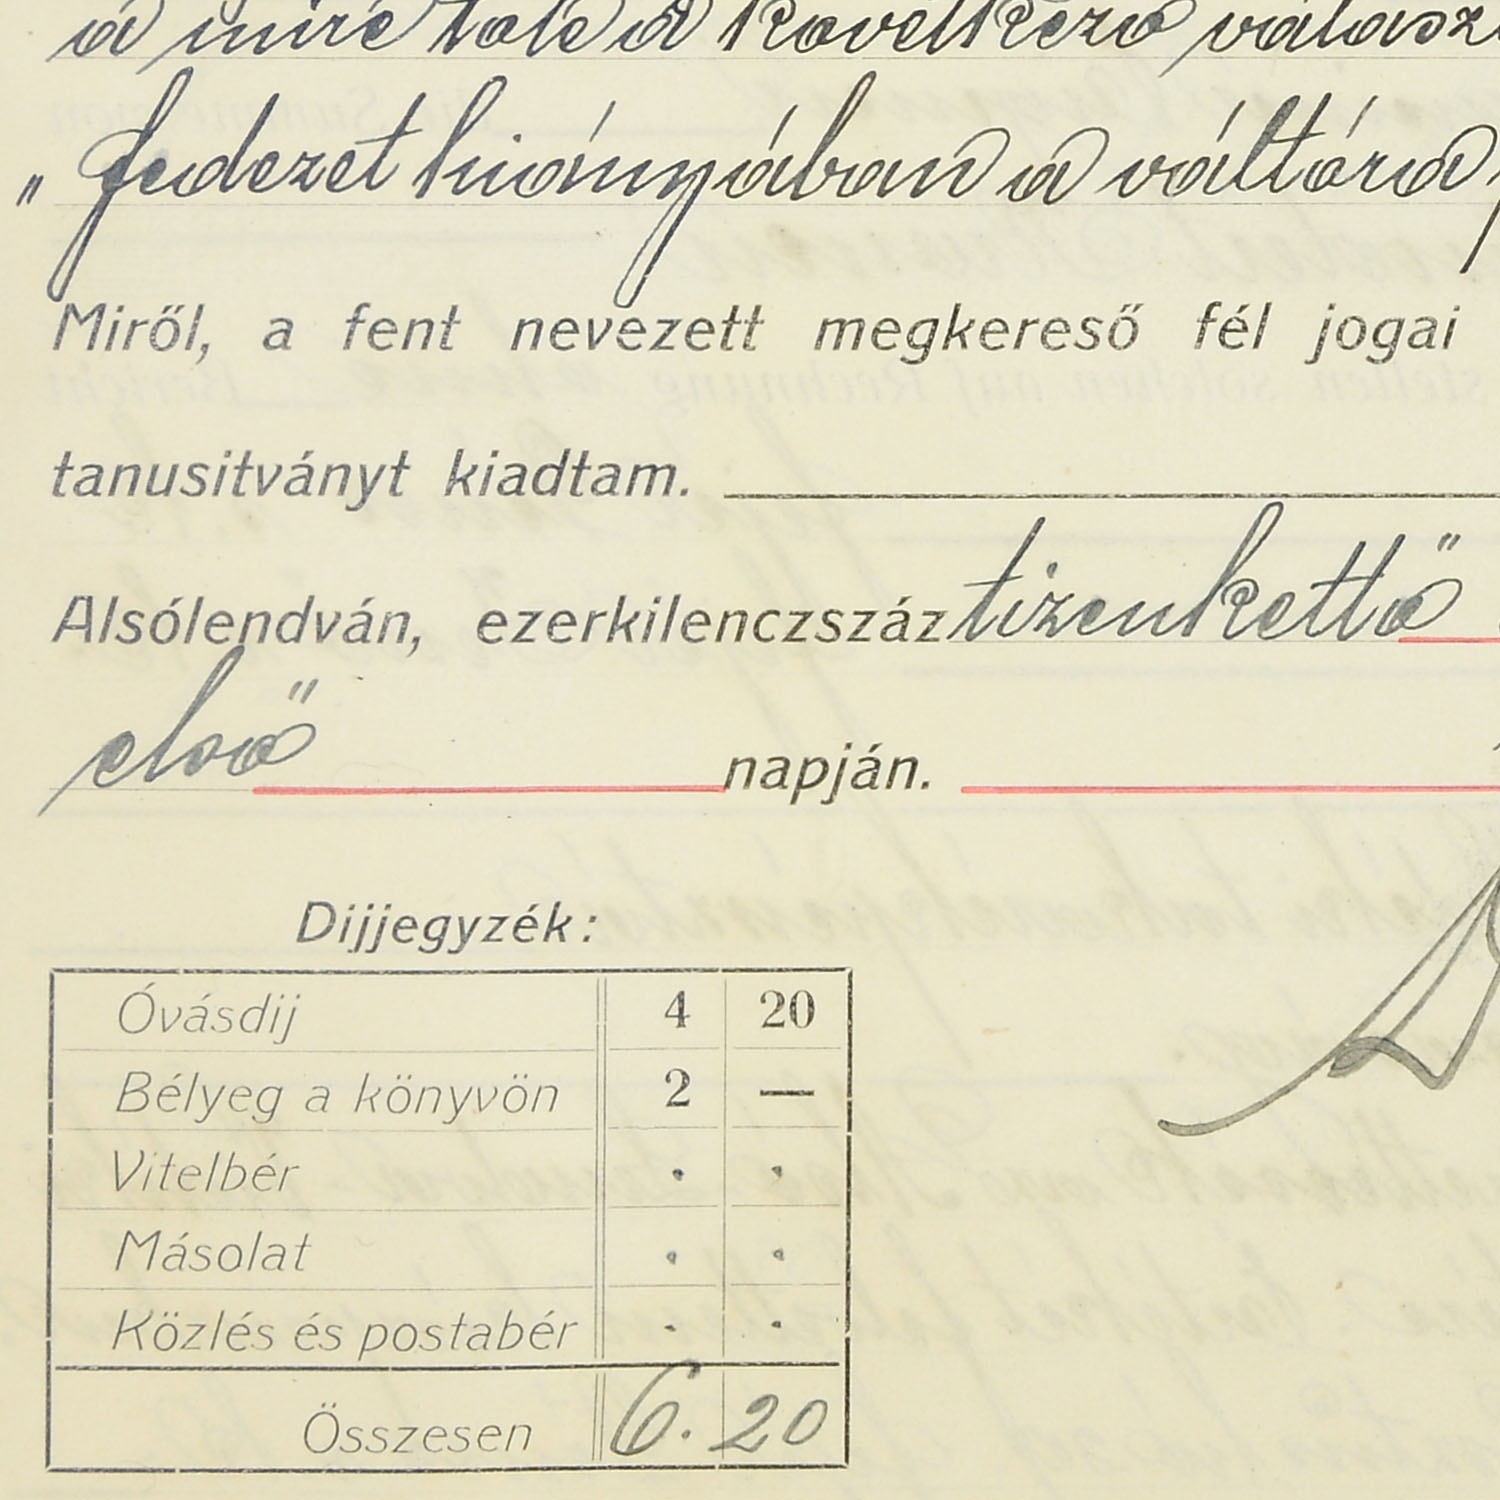 a mire tőle a következő válasz
„fedezet hiányában a váltóra
Miről, a fent nevezett megkereső fél jogai
tanusitványt kiadtam.
Alsólendván, ezerkilenczszáz tizenkettő
első napján.
Dijjegyzék:
Óvásdij 4 20
Bélyeg a könyvön 2 —
Vitelbér . .
Másolat . .
Közlés és postabér . .
Összesen 6. 20